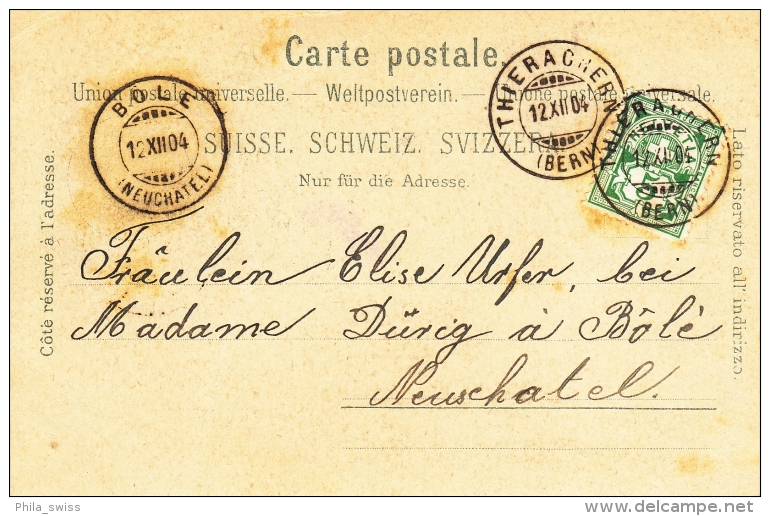 Carte postale.
Union postale universelle. — Weltpostverein. — Unione postale universale.
SUISSE. SCHWEIZ. SVIZZERA.
Nur für die Adresse.
Côté réservé à l'adresse.
Lato riservato all' indirizzo.
BOLE
12.XII.04
(NEUCHATEL)
THIERACHERN
12.XII.04
(BERN)
THIERACHERN
12.XII.04
(BERN)
Fräulein Elise Urfer, bei
Madame Dürig à Bôle
Neuschatel.
Phila_swiss
delcampe.net